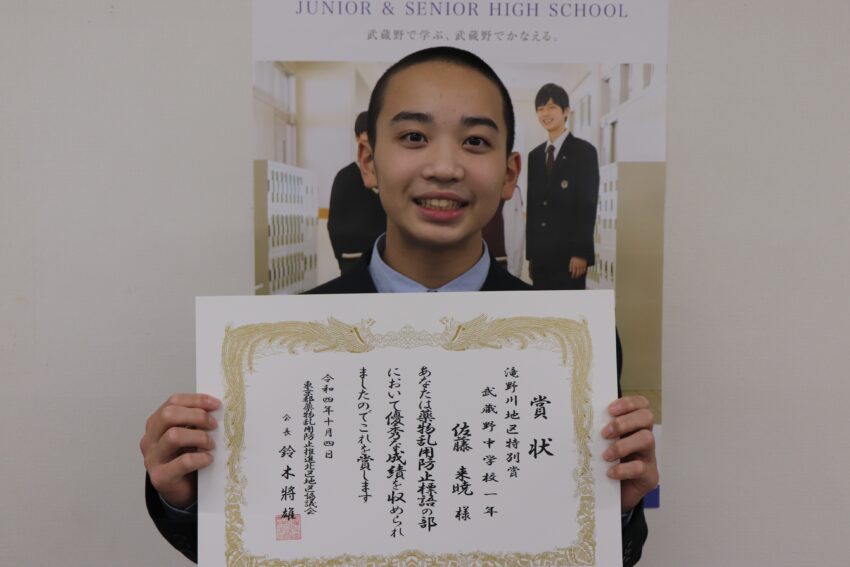 JUNIOR & SENIOR HIGH SCHOOL
武蔵野で学ぶ、武蔵野でかなえる。
賞状
滝野川地区特別賞
武蔵野中学校一年
佐藤 来暁 様
あなたは薬物乱用防止標語の部
において優秀な成績を収められ
ましたのでこれを賞します
令和四年十月四日
東京都薬物乱用防止推進北区地区協議会
会長 鈴木將雄